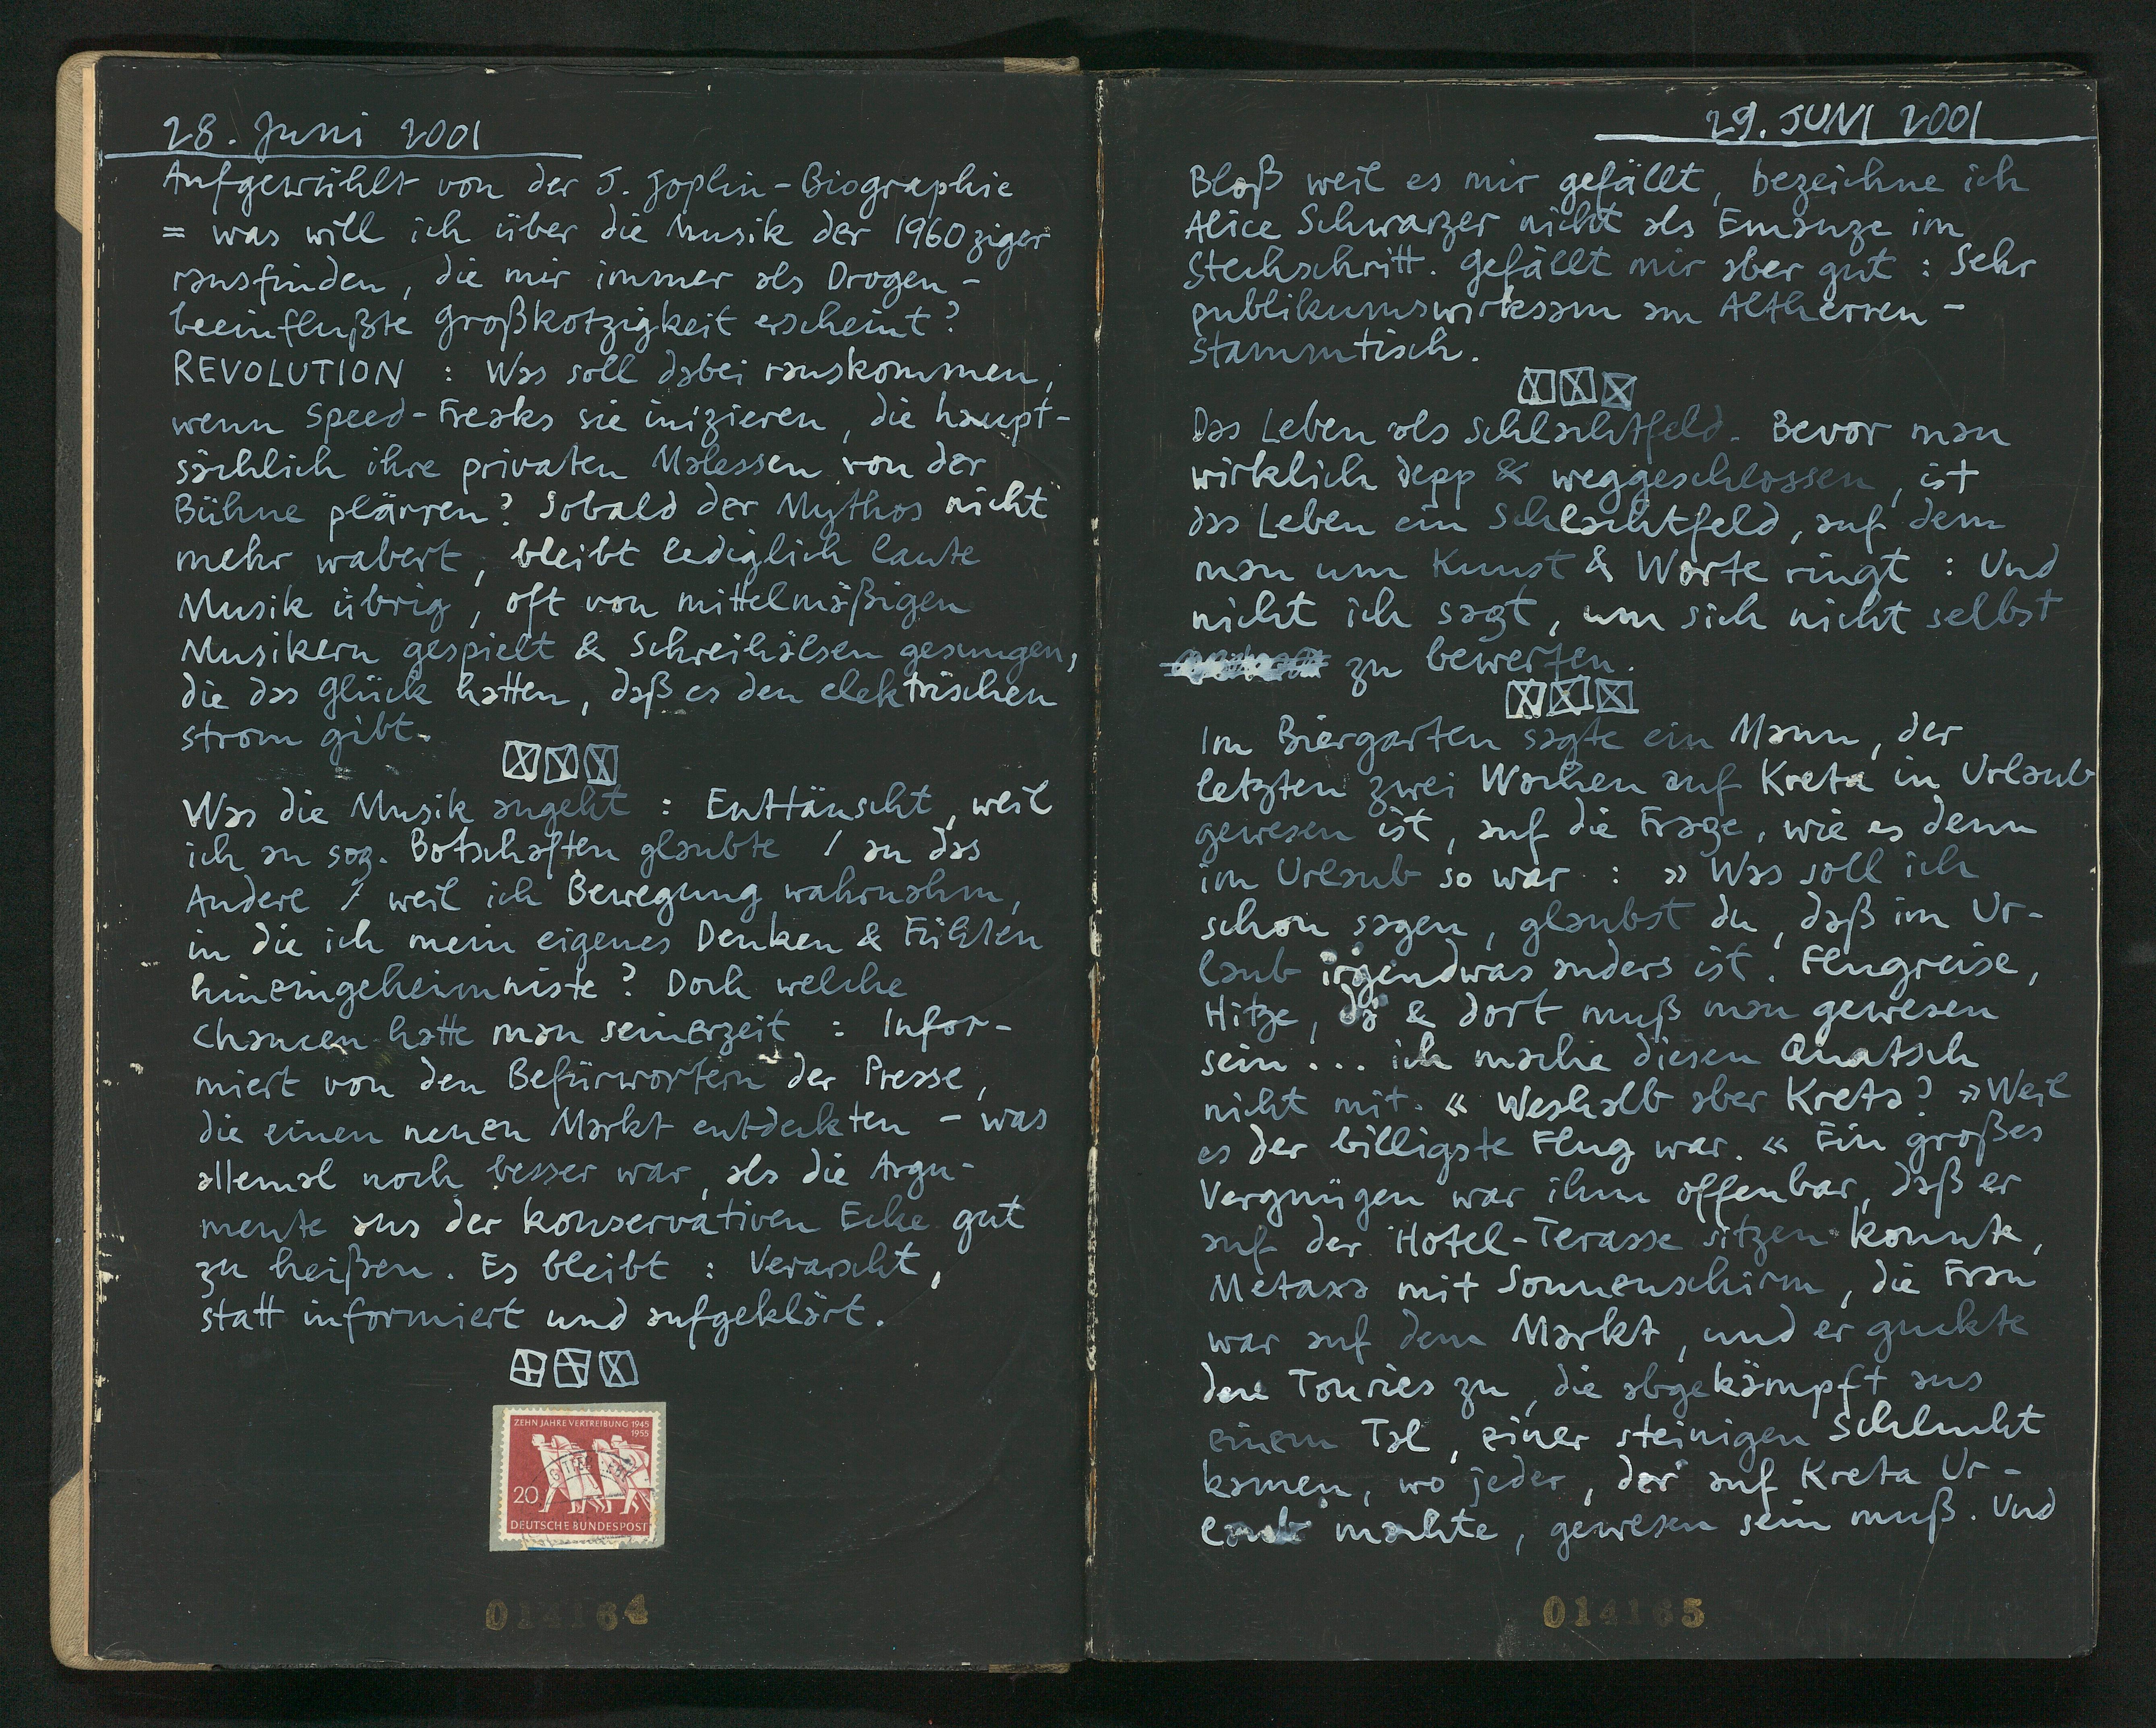 28. Juni 2001
Aufgewühlt von der J. Joplin-Biographie
= was will ich über die Musik der 1960ziger
rausfinden, die mir immer als Drogen-
beeinflußte Großkotzigkeit erscheint?
REVOLUTION : Was soll dabei rauskommen,
wenn Speed-Freaks sie inizieren, die haupt-
sächlich ihre privaten Malessen von der
Bühne plärren? Sobald der Mythos nicht
mehr wabert, bleibt lediglich laute
Musik übrig, oft von mittelmäßigen
Musikern gespielt & Schreihälsen gesungen,
die das Glück hatten, daß es den elektrischen
Strom gibt.
Was die Musik angeht : Enttäuscht, weil
ich an sog. Botschaften glaubte / an das
Andere / weil ich Bewegung wahrnahm,
in die ich mein eigenes Denken & Fühlen
hineingeheimniste? Doch welche
Chancen hatte man seinerzeit : Infor-
miert von den Befürwortern der Presse,
die einen neuen Markt entdeckten - was
allemal noch besser war, als die Argu-
mente aus der konservativen Ecke gut
zu heißen. Es bleibt : Verarscht,
statt informiert und aufgeklärt.
ZEHN JAHRE VERTREIBUNG 1945
1955
20
DEUTSCHE BUNDESPOST
014164
29. JUNI 2001
Bloß weil es mir gefällt, bezeichne ich
Alice Schwarzer nicht als Emanze im
Stechschritt. Gefällt mir aber gut : Sehr
publikumswirksam am Altherren-
stammtisch.
Das Leben als Schlachtfeld. Bevor man
wirklich depp & weggeschlossen, ist
das Leben ein Schlachtfeld, auf dem
man um Kunst & Worte ringt : Und
nicht ich sagt, um sich nicht selbst
zu bewerten.
Im Biergarten sagte ein Mann, der
letzten zwei Wochen auf Kreta in Urlaub
gewesen ist, auf die Frage, wie es denn
im Urlaub so war : » Was soll ich
schon sagen, glaubst du, daß im Ur-
laub irgendwas anders ist. Flugreise,
Hitze, da & dort muß man gewesen
sein... ich mache diesen Quatsch
nicht mit. « Weshalb aber Kreta? » Weil
es der billigste Flug war. « Ein großes
Vergnügen war ihm offenbar, daß er
auf der Hotel-Terasse sitzen konnte,
Metaxa mit Sonnenschirm, die Frau
war auf dem Markt, und er guckte
den Touries zu, die abgekämpft aus
einem Tal, einer steinigen Schlucht
kamen, wo jeder, der auf Kreta Ur-
laub machte, gewesen sein muß. Und
014165